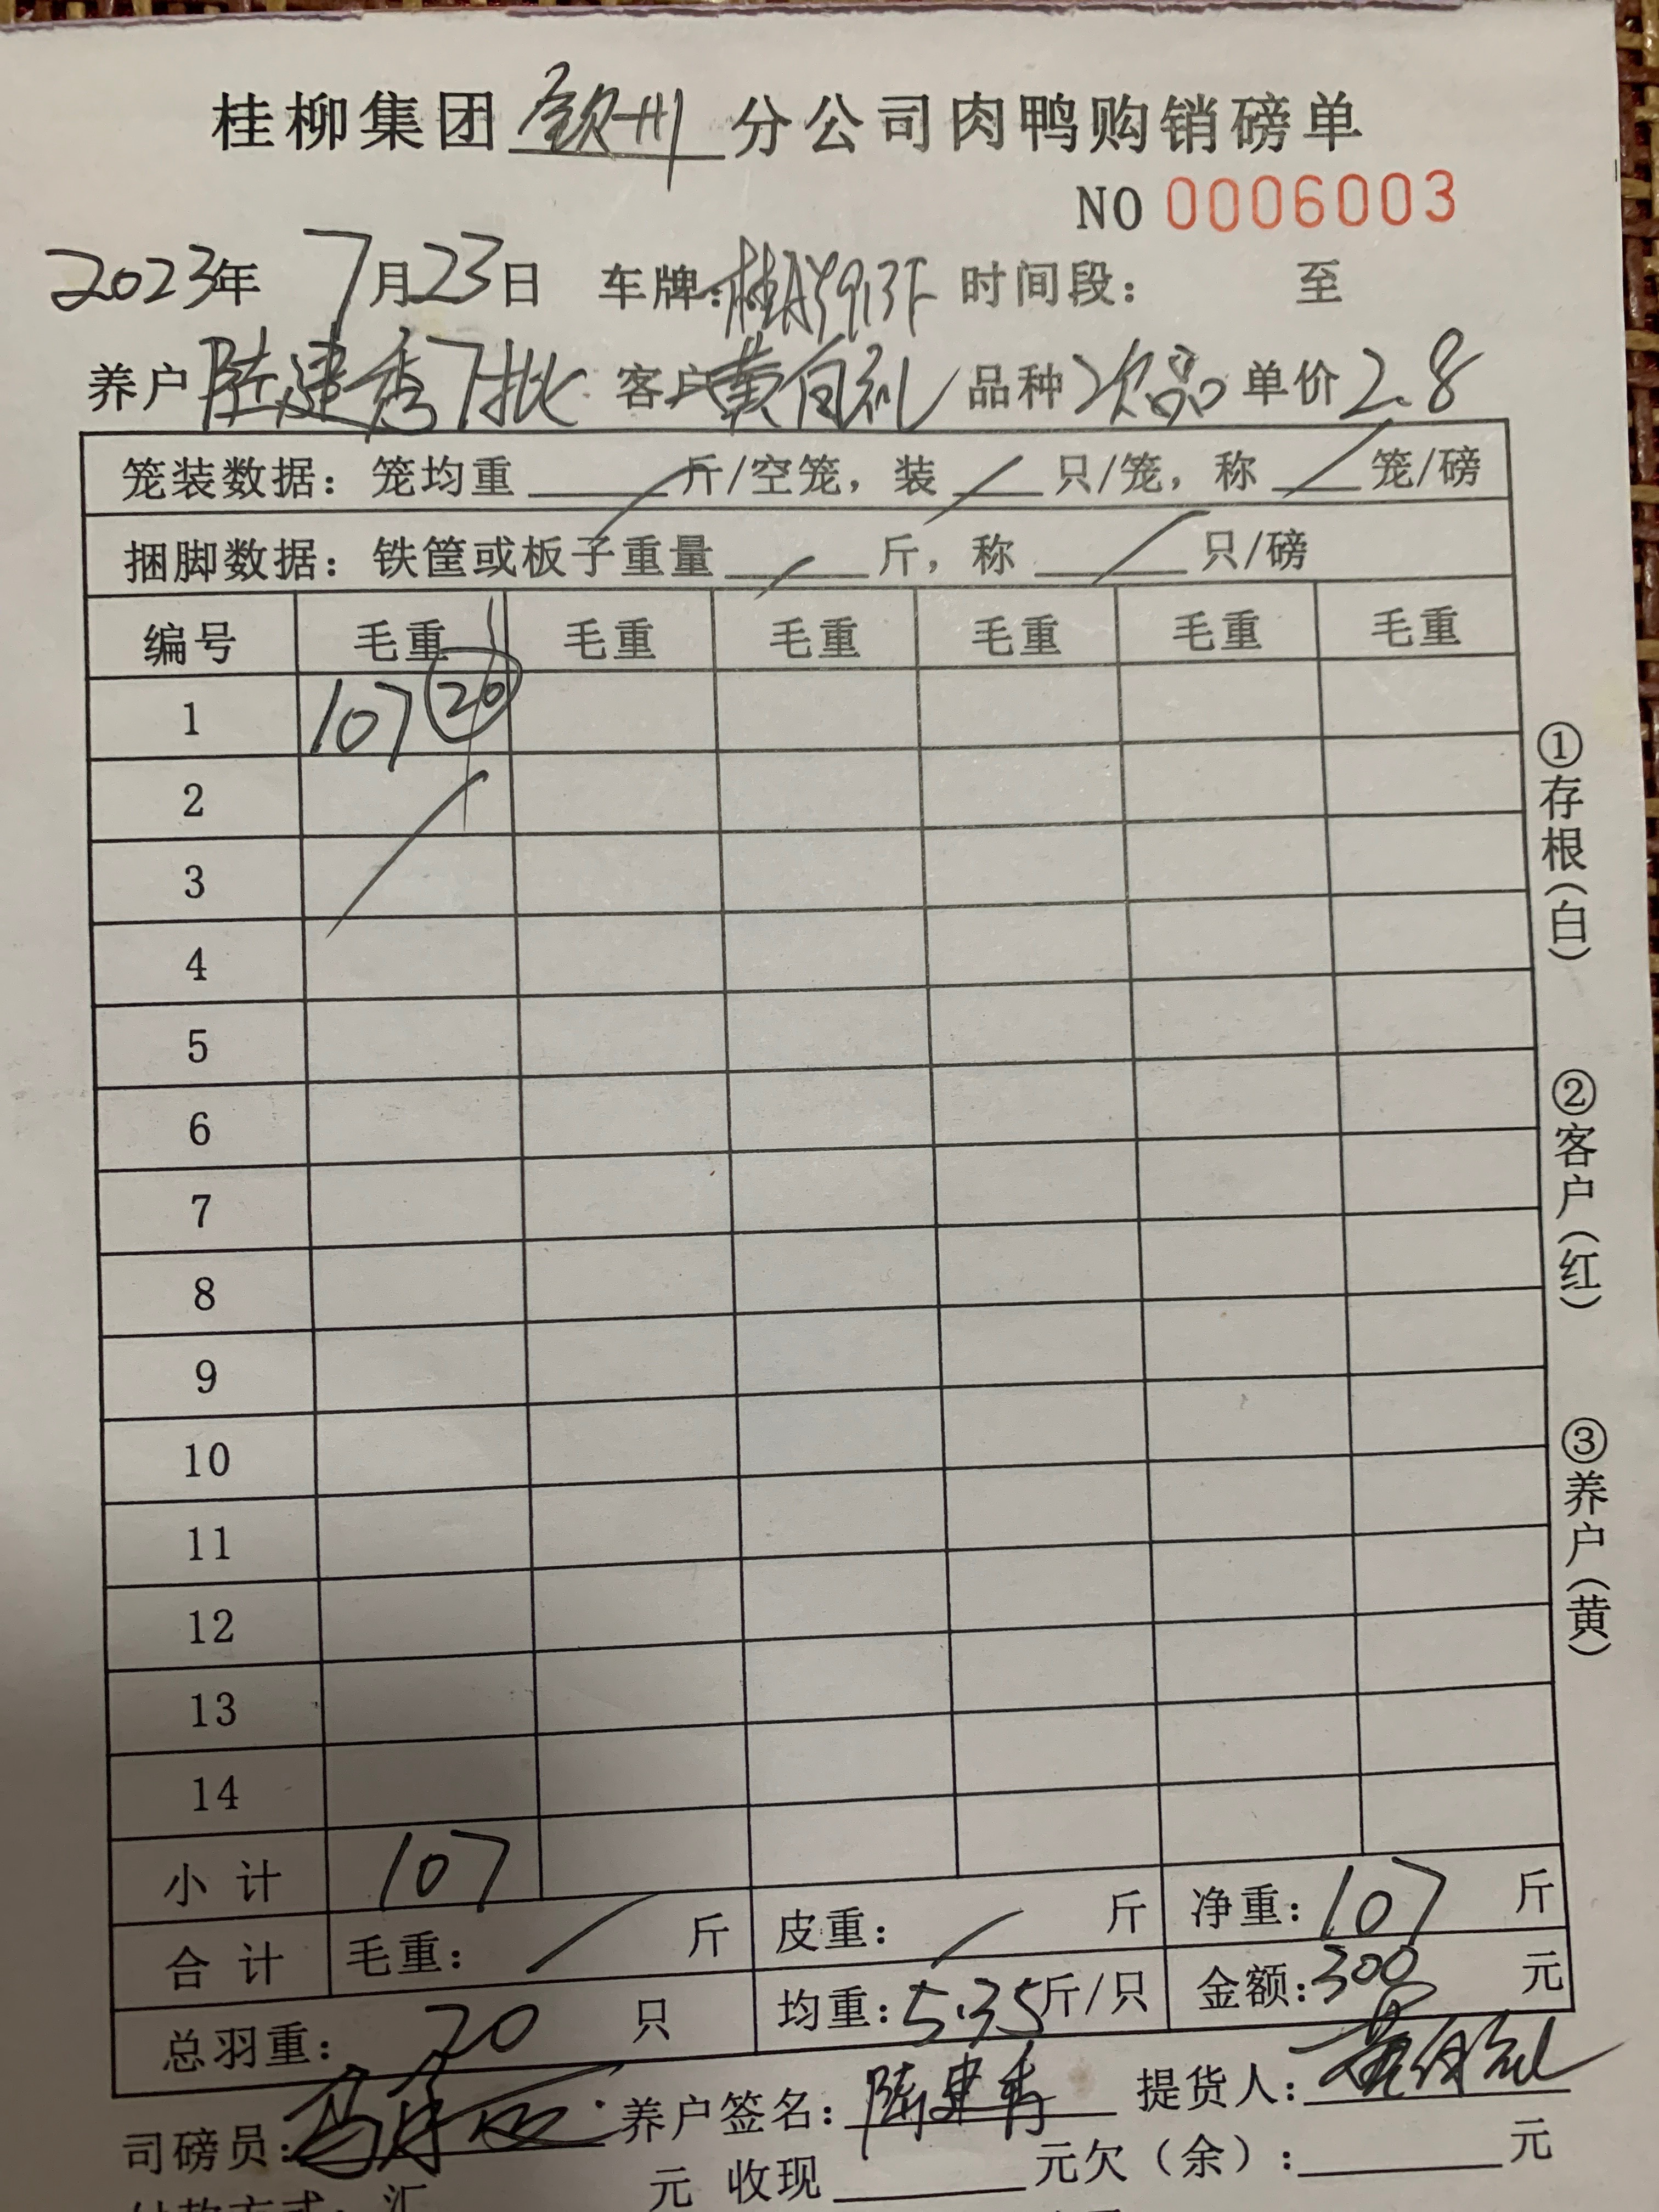 桂柳集团钦州分公司肉鸭购销磅单
NO 0006003
2023年 7月23日 车牌: 时间段: 至
养户 陆建秀7批 客户 黄 礼 品种 次品 单价 2.8
笼装数据: 笼均重 斤/空笼, 装 只/笼, 称 笼/磅
捆脚数据: 铁筐或板子重量 斤, 称 只/磅
编号 毛重 毛重 毛重 毛重 毛重 毛重
1 107 20
2
3
4
5
6
7
8
9
10
11
12
13
14
小计 107
合计 毛重: 斤 皮重: 斤 净重: 107 斤
总羽重: 20 只 均重: 5.35斤/只 金额: 300 元
司磅员: 养户签名: 陆建秀 提货人:
付款方式: 汇 元 收现 元欠(余): 元
①存根(白)
②客户(红)
③养户(黄)